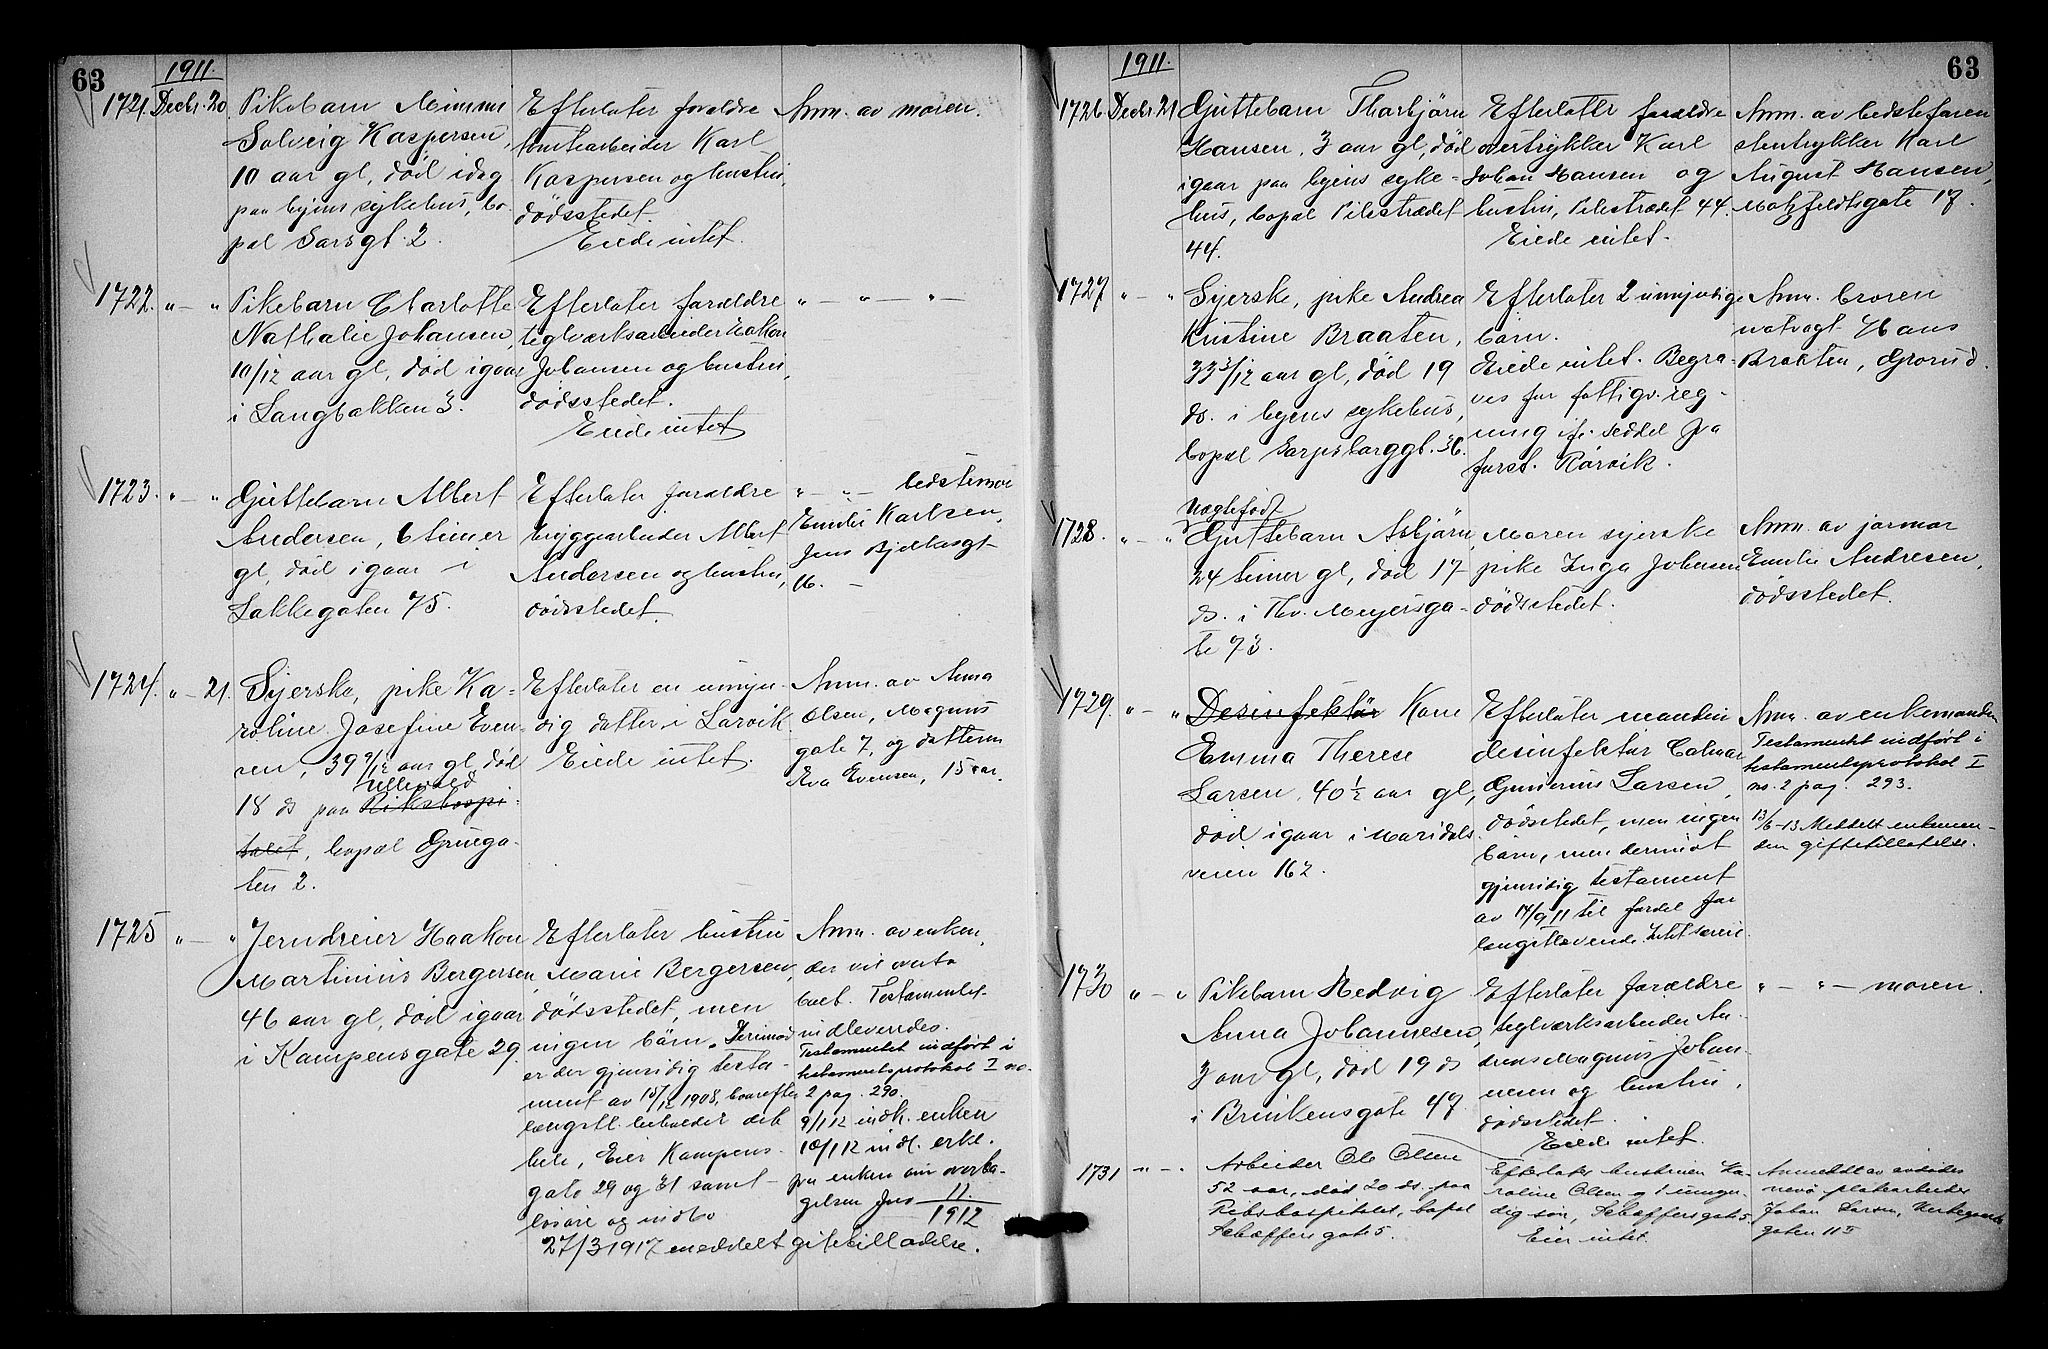 63
1911.
1721. Decbr. 20.
Pikebarn Mimmi
Solveig Kaspersen,
10 aar gl, död idag
paa byens sykehus, bo-
pæl Sarsgt. 2.
Efterlater forældre
Karl
Kaspersen og hustru,
dödsstedet.
Eiede intet.
Anm. av moren.
1722. " — "
Pikebarn Charlotte
Nathalie Johansen,
10/12 aar gl, död igaar
i Langbakken 3.
Efterlater forældre
teglverksarbeider Haakon
Johansen og hustru,
dödsstedet.
Eiede intet
" — " — " —
1723. " — "
Guttebarn Albert
Andersen, 6 timer
gl, död igaar i
Lakkegaten 75.
Efterlater forældre
bryggearbeider Albert
Andersen og hustru,
dödsstedet.
" — " — bedstemor
Emilie Karlsen,
Jens Bjelkesgt
16. —
1724. " — 21.
Syerske, pike Ka-
roline Josefine Even-
sen, 39 9/12 aar gl, död
Ullevold
18 ds paa Rikshospi-
talet, bopæl Gruega-
ten 2.
Efterlater en umyn-
dig datter i Larvik.
Eiede intet.
Anm. av Anna
Olsen, Magnus
gate 7, og datteren
Eva Evensen, 15 aar.
1725 " — "
Jerndreier Haakon
Martinius Bergersen,
46 aar gl, död igaar
i Kampensgate 29.
Efterlater hustru
Marie Bergersen,
dödsstedet, men
ingen börn. Derimod
er der gjensidig testa-
ment av 15/12 1908, hvorefter
længstl. beholder det
hele, Eier Kampens-
gate 29 og 31 samt
lösöre og indbo
Anm. av enken,
der vil overta
boet. Testamentet
indleveredes.
Testamentet indfört i
testamentsprotokol I no.
2 pag. 290.
9/1 12 indk. enken
10/1 12 indl. erkl.
fra enken om overta-
gelsen Jno 11/1912
27/3 1917 meddelt giftetilladelse.
63
1911.
1726. Decbr 21
Guttebarn Thorbjörn
Hansen, 3 aar gl, död
igaar paa byens syke-
hus, bopæl Pilestrædet
44.
Efterlater forældre
overtrykker Karl
Johan Hansen og
hustru, Pilestrædet 44.
Eiede intet.
Anm. av bedstefaren
stentrykker Karl
August Hansen,
Motzfeldtsgate 17.
1727 " — "
Syerske, pike Andrea
Kristine Braaten,
33 3/12 aar gl, död 19
ds. i byens sykehus,
bopæl Sarpsborggt. 36.
Efterlater 2 umyndige
börn.
Eiede intet. Begra-
ves for fattigv. reg-
ning if. seddel fra
forst. Rörvik.
Anm. broren
natvagt Hans
Braaten, Grorud.
1728. " — "
Uægtefödt
Guttebarn Asbjörn,
24 timer gl, död 17
ds. i Thv. Meyersga-
te 73.
Moren syerske
pike Inga Johansen
dödsstedet.
Anm. av jormor
Emilie Andresen,
dödsstedet.
1729. " — "
Desinfektör Kone
Emma Therese
Larsen, 40 1/2 aar gl,
död igaar i Maridals-
veien 162.
Efterlater manden
desinfektör
Gunerius Larsen,
dödsstedet, men ingen
börn, men derimot
gjensidig testament
av 14/9 11 til fordel for
længstlevende. Intet særeie.
Anm. av enkemanden
Testamentet indfört i
testamentsprotokol I
no. 2 pag. 293.
13/6-13 Meddelt enkeman-
den giftetilladelse.
1730 " — "
Pikebarn Hedvig
Anna Johannesen,
3 aar gl, död 19 ds
i Brinkensgate 47
Efterlater forældre
teglverksarbeider An-
dreas Magnus Johan-
nesen og hustru,
dödsstedet.
Eiede intet.
" — " — moren.
1731 " — "
Arbeider Ole Olsen
52 aar, död 20 ds. paa
Rikshospitalet, bopæl
Schæffersgate 5.
Efterlater hustruen Ka-
roline Olsen og 1 umyn-
dig sön, Schæffersgate 5
Eier intet.
Anmeldt av avdödes
nevö platearbeider
Johan Larsen,
gaten 11 II